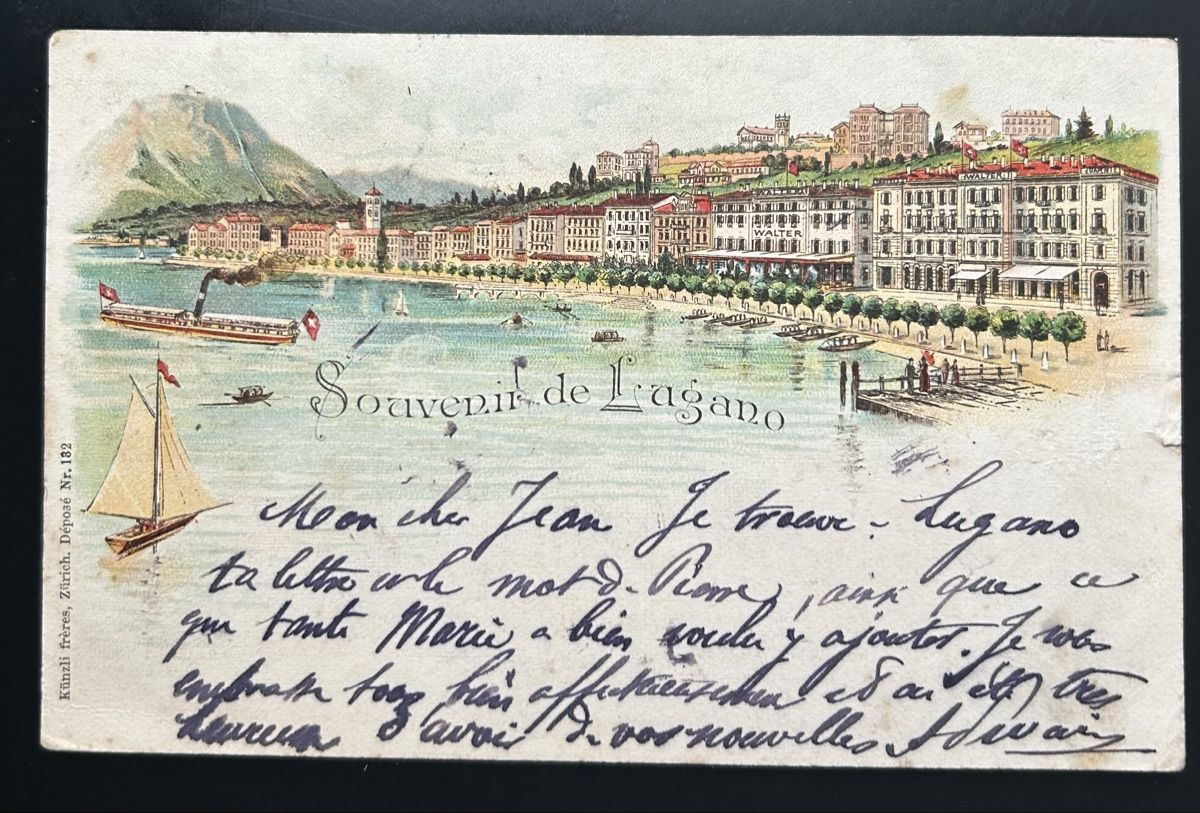 WALTER
WALTER
Souvenir de Lugano
Künzli frères, Zürich. Déposé Nr. 132
Mon cher Jean Je trouve - Lugano
ta lettre et le mot de Pierre, ainsi que ce
que tante Marie a bien voulu y ajouter. Je vous
embrasse tous bien affectueusement et ai été très
heureux d'avoir de vos nouvelles